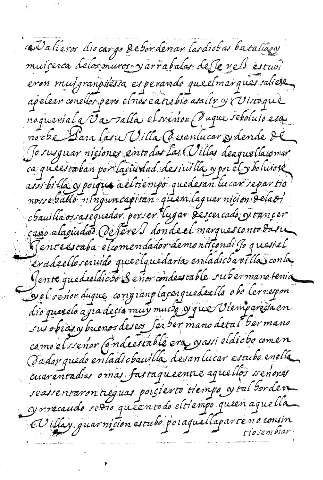 cavalleros dio cargo de hordenar las dichas batallas y
muy cerca de los muros y arrabales de Xerez estubi
eron muy gran pieza esperando que el marques saliese
a pelear con ellos pero el no estubo asaltr y Visto que
no queria la Vatalla el señor Duque se bolvio esa
noche Para la su Villa de Senlucar y dende de
Jo sus guarniciones en todas las Villas de aquella comar
ca que estaban por la ciudad de sivilla y por el y bolviose
a sivilla y porque al tiempo que de sanlucar se partio
no se hallo ningun capitan que en la guarnicion de la di
cha villa osase quedar por ser lugar descercado y tan cer
cano a la ciudad de Xerez donde el marques con toda su
Jente estaba el comendador de montisendi Jo questa el
era de ello serbido que el quedarta en la dicha villa con la
Jente que el dicho señor condestable su hermano tenia
y el señor duque con gran plazer quedello obo le respon
dio que ge lo agradecia muy mucho y que Vien parezia en
sus obras y buenos deseos ser hermano de tal hermano
como el señor condestable era y asi el dicho comen
dador quedo en la dicha villa de sanlucar estubo en ella
cuarenta dias o mas fasta que entre aquellos señores
se asentaron treguas por cierto tiempo y tal horden
y rrecaudo se dio que en todo el tiempo que en aquella
Villa y guarnicion estubo por aquella parte no consin
tio sembrar